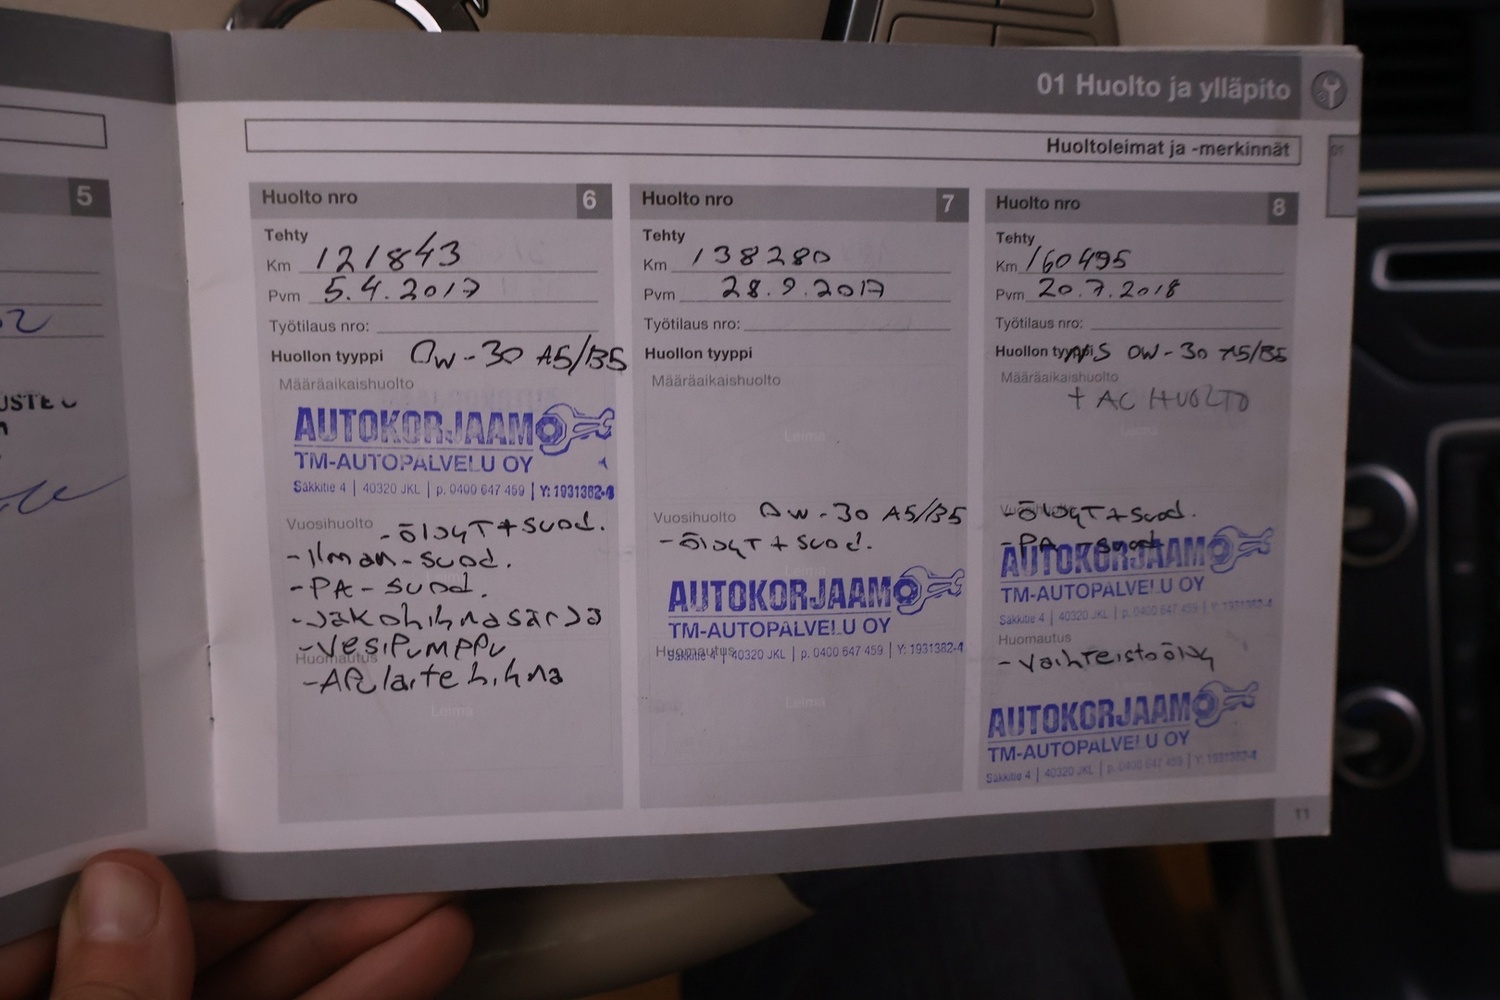 01 Huolto ja ylläpito
Huoltoleimat ja -merkinnät
01
5
Huolto nro 6
Tehty
Km 121843
Pvm 5.4.2017
Työtilaus nro:
Huollon tyyppi 0w-30 A5/B5
Määräaikaishuolto
AUTOKORJAAMO
TM-AUTOPALVELU OY
Säkkitie 4 | 40320 JKL | p. 0400 647 459 | Y: 1931382-4
Vuosihuolto -öljyt + suod.
-Ilman-suod.
-PA-suod.
-Jakohihnasarja
-Vesipumppu
Huomautus
-Apulaitehihna
Leima
Huolto nro 7
Tehty
Km 138280
Pvm 28.9.2017
Työtilaus nro:
Huollon tyyppi
Määräaikaishuolto
Leima
Vuosihuolto 0w-30 A5/B5
-öljyt + suod.
Leima
AUTOKORJAAMO
TM-AUTOPALVELU OY
Huomautus
Säkkitie 4 | 40320 JKL | p. 0400 647 459 | Y: 1931382-4
Leima
Huolto nro 8
Tehty
Km 160495
Pvm 20.7.2018
Työtilaus nro:
Huollon tyyppi 0W-30 A5/B5
Määräaikaishuolto
+ AC HUOLTO
Leima
Vuosihuolto
-öljyt + suod.
-PA-suod.
AUTOKORJAAMO
TM-AUTOPALVELU OY
Säkkitie 4 | 40320 JKL | p. 0400 647 459 | Y: 1931382-4
Huomautus
-Vaihteistoöljy
AUTOKORJAAMO
TM-AUTOPALVELU OY
Säkkitie 4 | 40320 JKL | p. 0400 647 459 | Y: 1931382-4
11